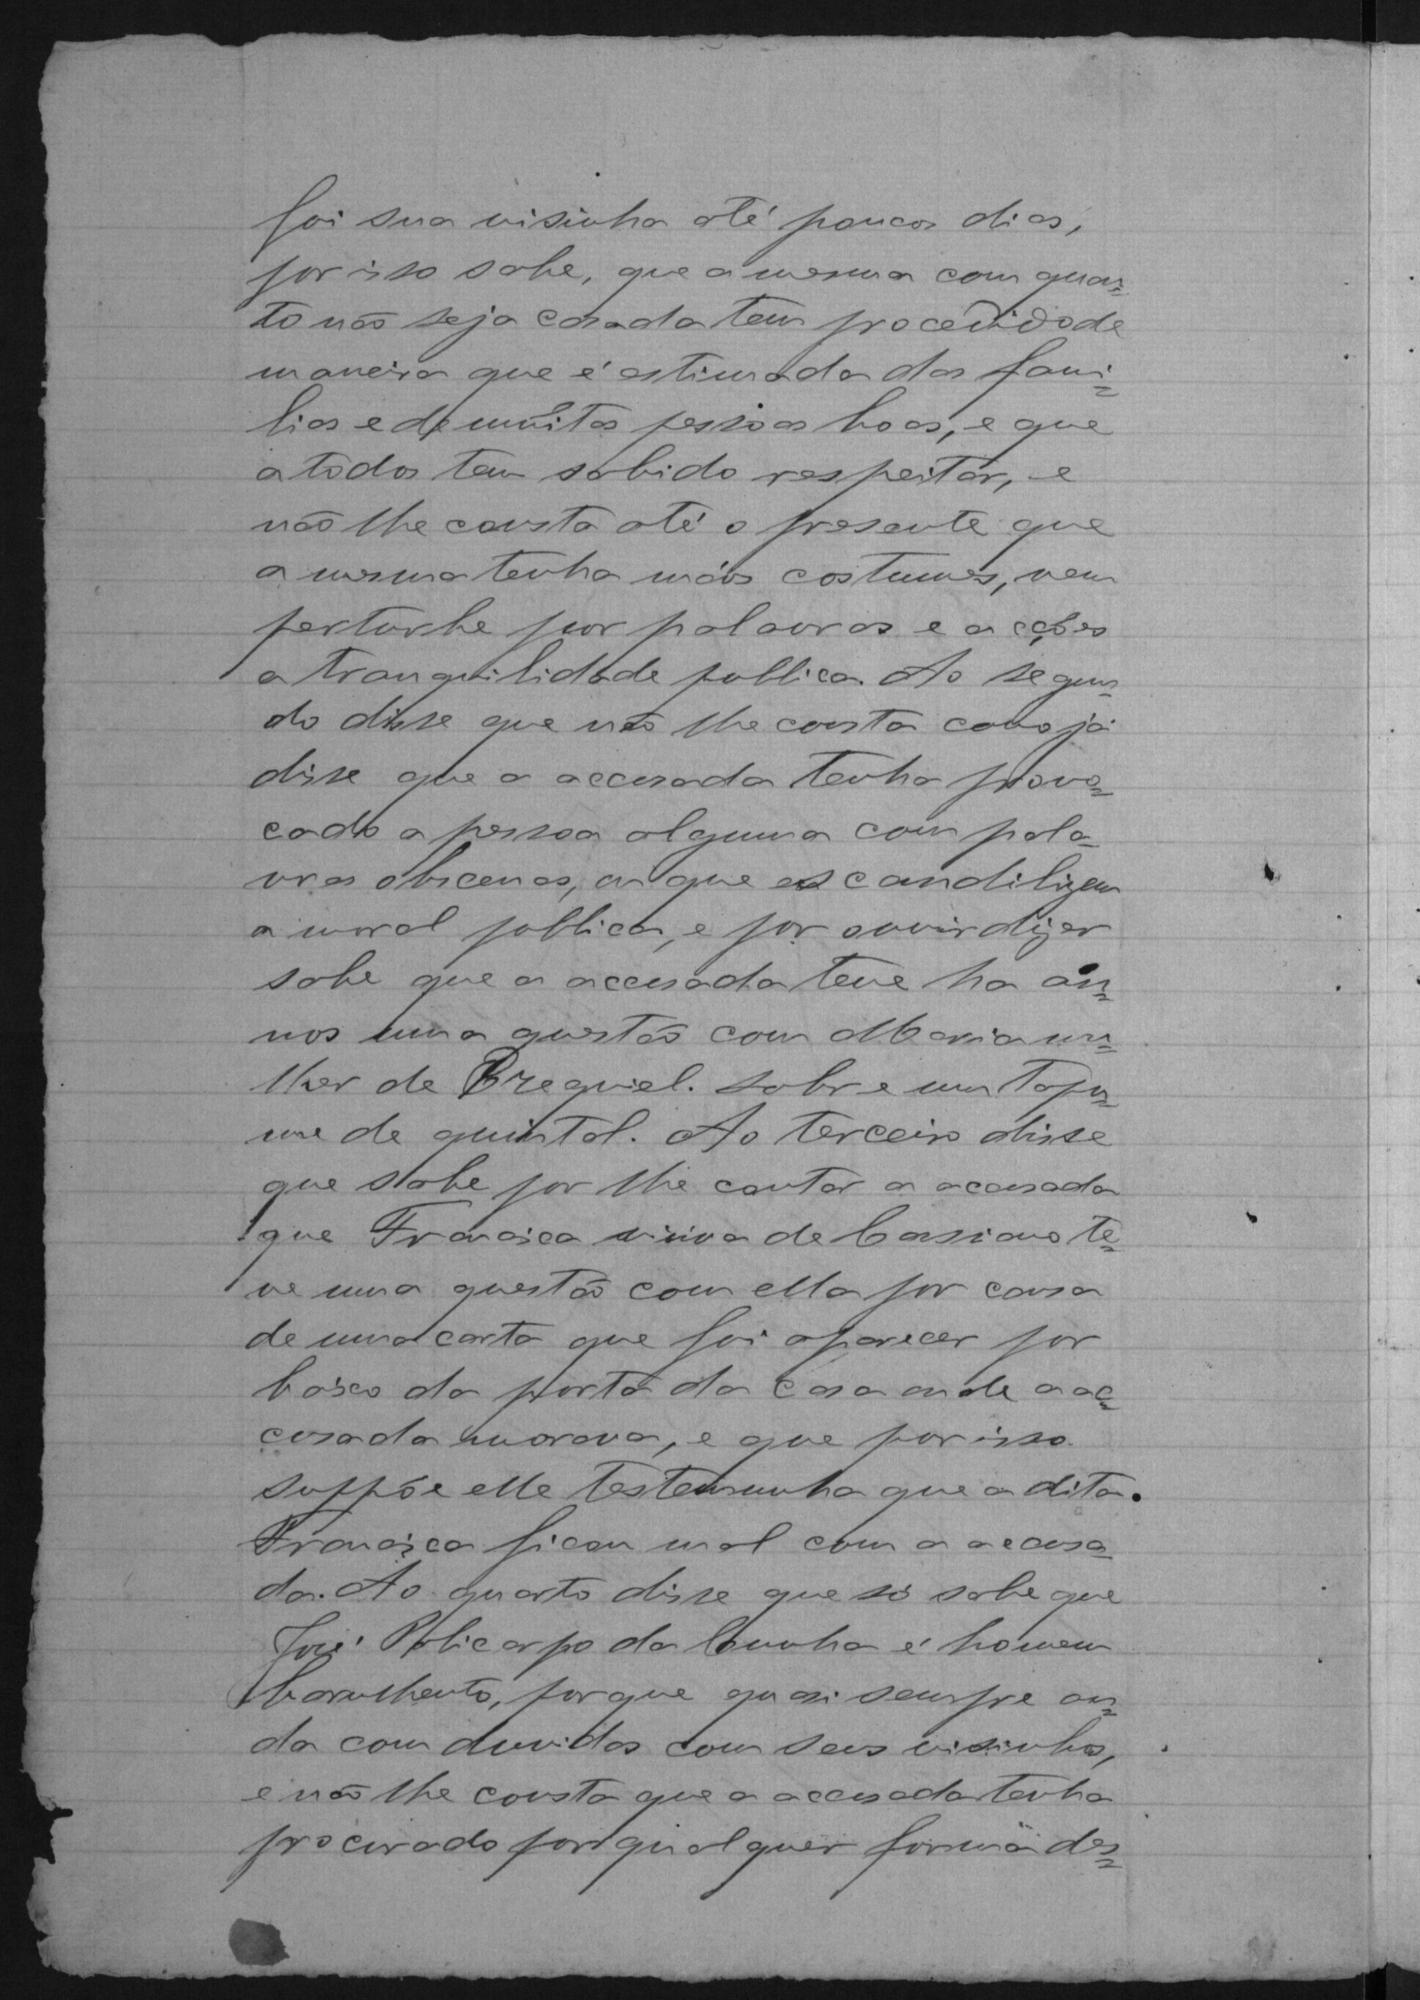 foi sua visinha até poucos dias,
por isso sabe, que a mesma com quan=
to não seja casada tem procedido de
maneira que é estimada das fami=
lias e de muitas pessoas boas, e que
a todos tem sabido respeitar, e
não lhe consta até o presente que
a mesma tenha máos costumes, nem
perturbe por palavras e acções
a tranquilidade publica. Ao segun=
do disse que não lhe consta como já
disse que a accusada tenha provo=
cado a pessoa alguma com pala=
vras obscenas, ou que escandilizem
a moral publica, e por ouvir dizer
sabe que a accusada teve ha an=
nos uma questão com Maria mu=
lher de Ezequiel. sobre um tapu=
me de quintal. Ao terceiro disse
que sabe por lhe contar a acusada
que Francisca viuva de Cassiano te=
ve uma questão com ella por causa
de uma carta que foi aparecer por
baixo da porta da casa onde a ac=
cusada morava, e que por isso
suppõe elle testemunha que a dita
Francisca ficou mal com a acusa=
da. Ao quarto disse que só sabe que
José Policarpo da Cunha é homem
barulhento, porque quasi sempre an=
da com duvidas com seus visinhos,
e não lhe consta que a accusada tenha
procurado por qualquer forma des=